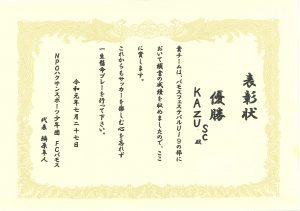 表彰状
優勝
KAZU SC 殿
貴チームは、バモスフェスティバルU-19の部に
おいて頭書の成績を収めましたので、ここ
に賞します。
これからもサッカーを楽しむ心を忘れず
一生懸命プレーを行って下さい。
令和元年七月二十七日
NPOハクサンスポーツ少年団 FCバモス
代表